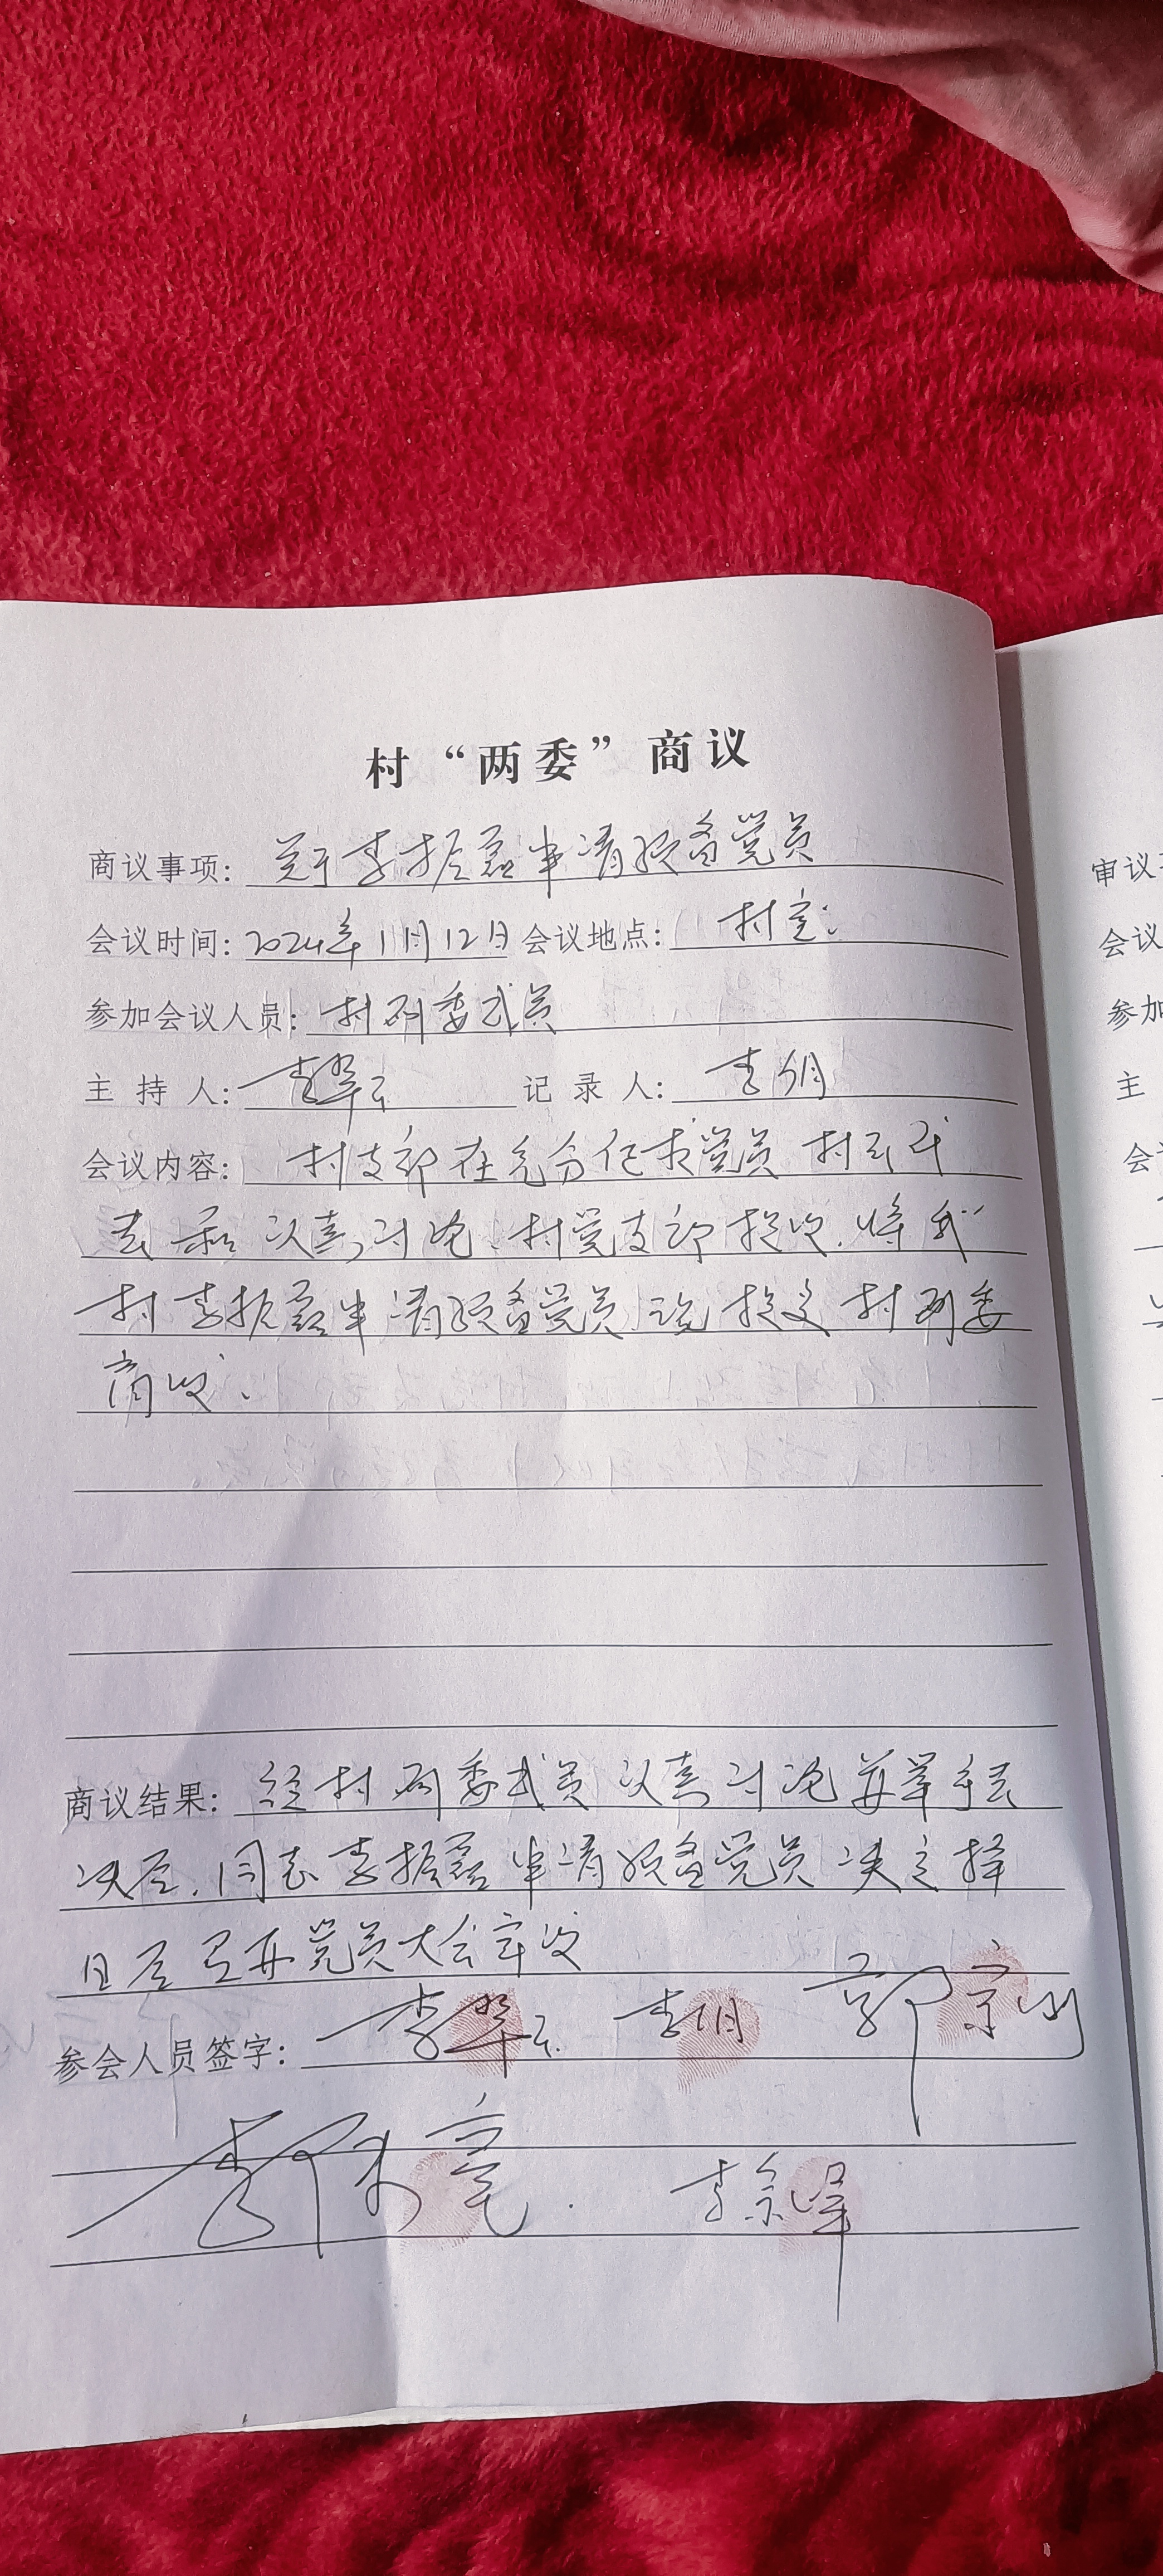 村“两委”商议
商议事项: 关于李振磊申请预备党员
会议时间: 2024年11月12日 会议地点: 村室
参加会议人员: 村两委成员
主 持 人: 李翠云 记 录 人: 李明
会议内容: 村支部在充分征求党员 村民代
表和认真讨论、村党支部提议. 将我
村李振磊申请预备党员 提交村两委
商议.
商议结果: 经村两委成员认真讨论并举手表
决后. 同意李振磊申请预备党员 决定择
日后召开党员大会审议
参会人员签字: 李翠云 李明 郭
李 亮. 李宗峰
审议
会议
参加
主
会